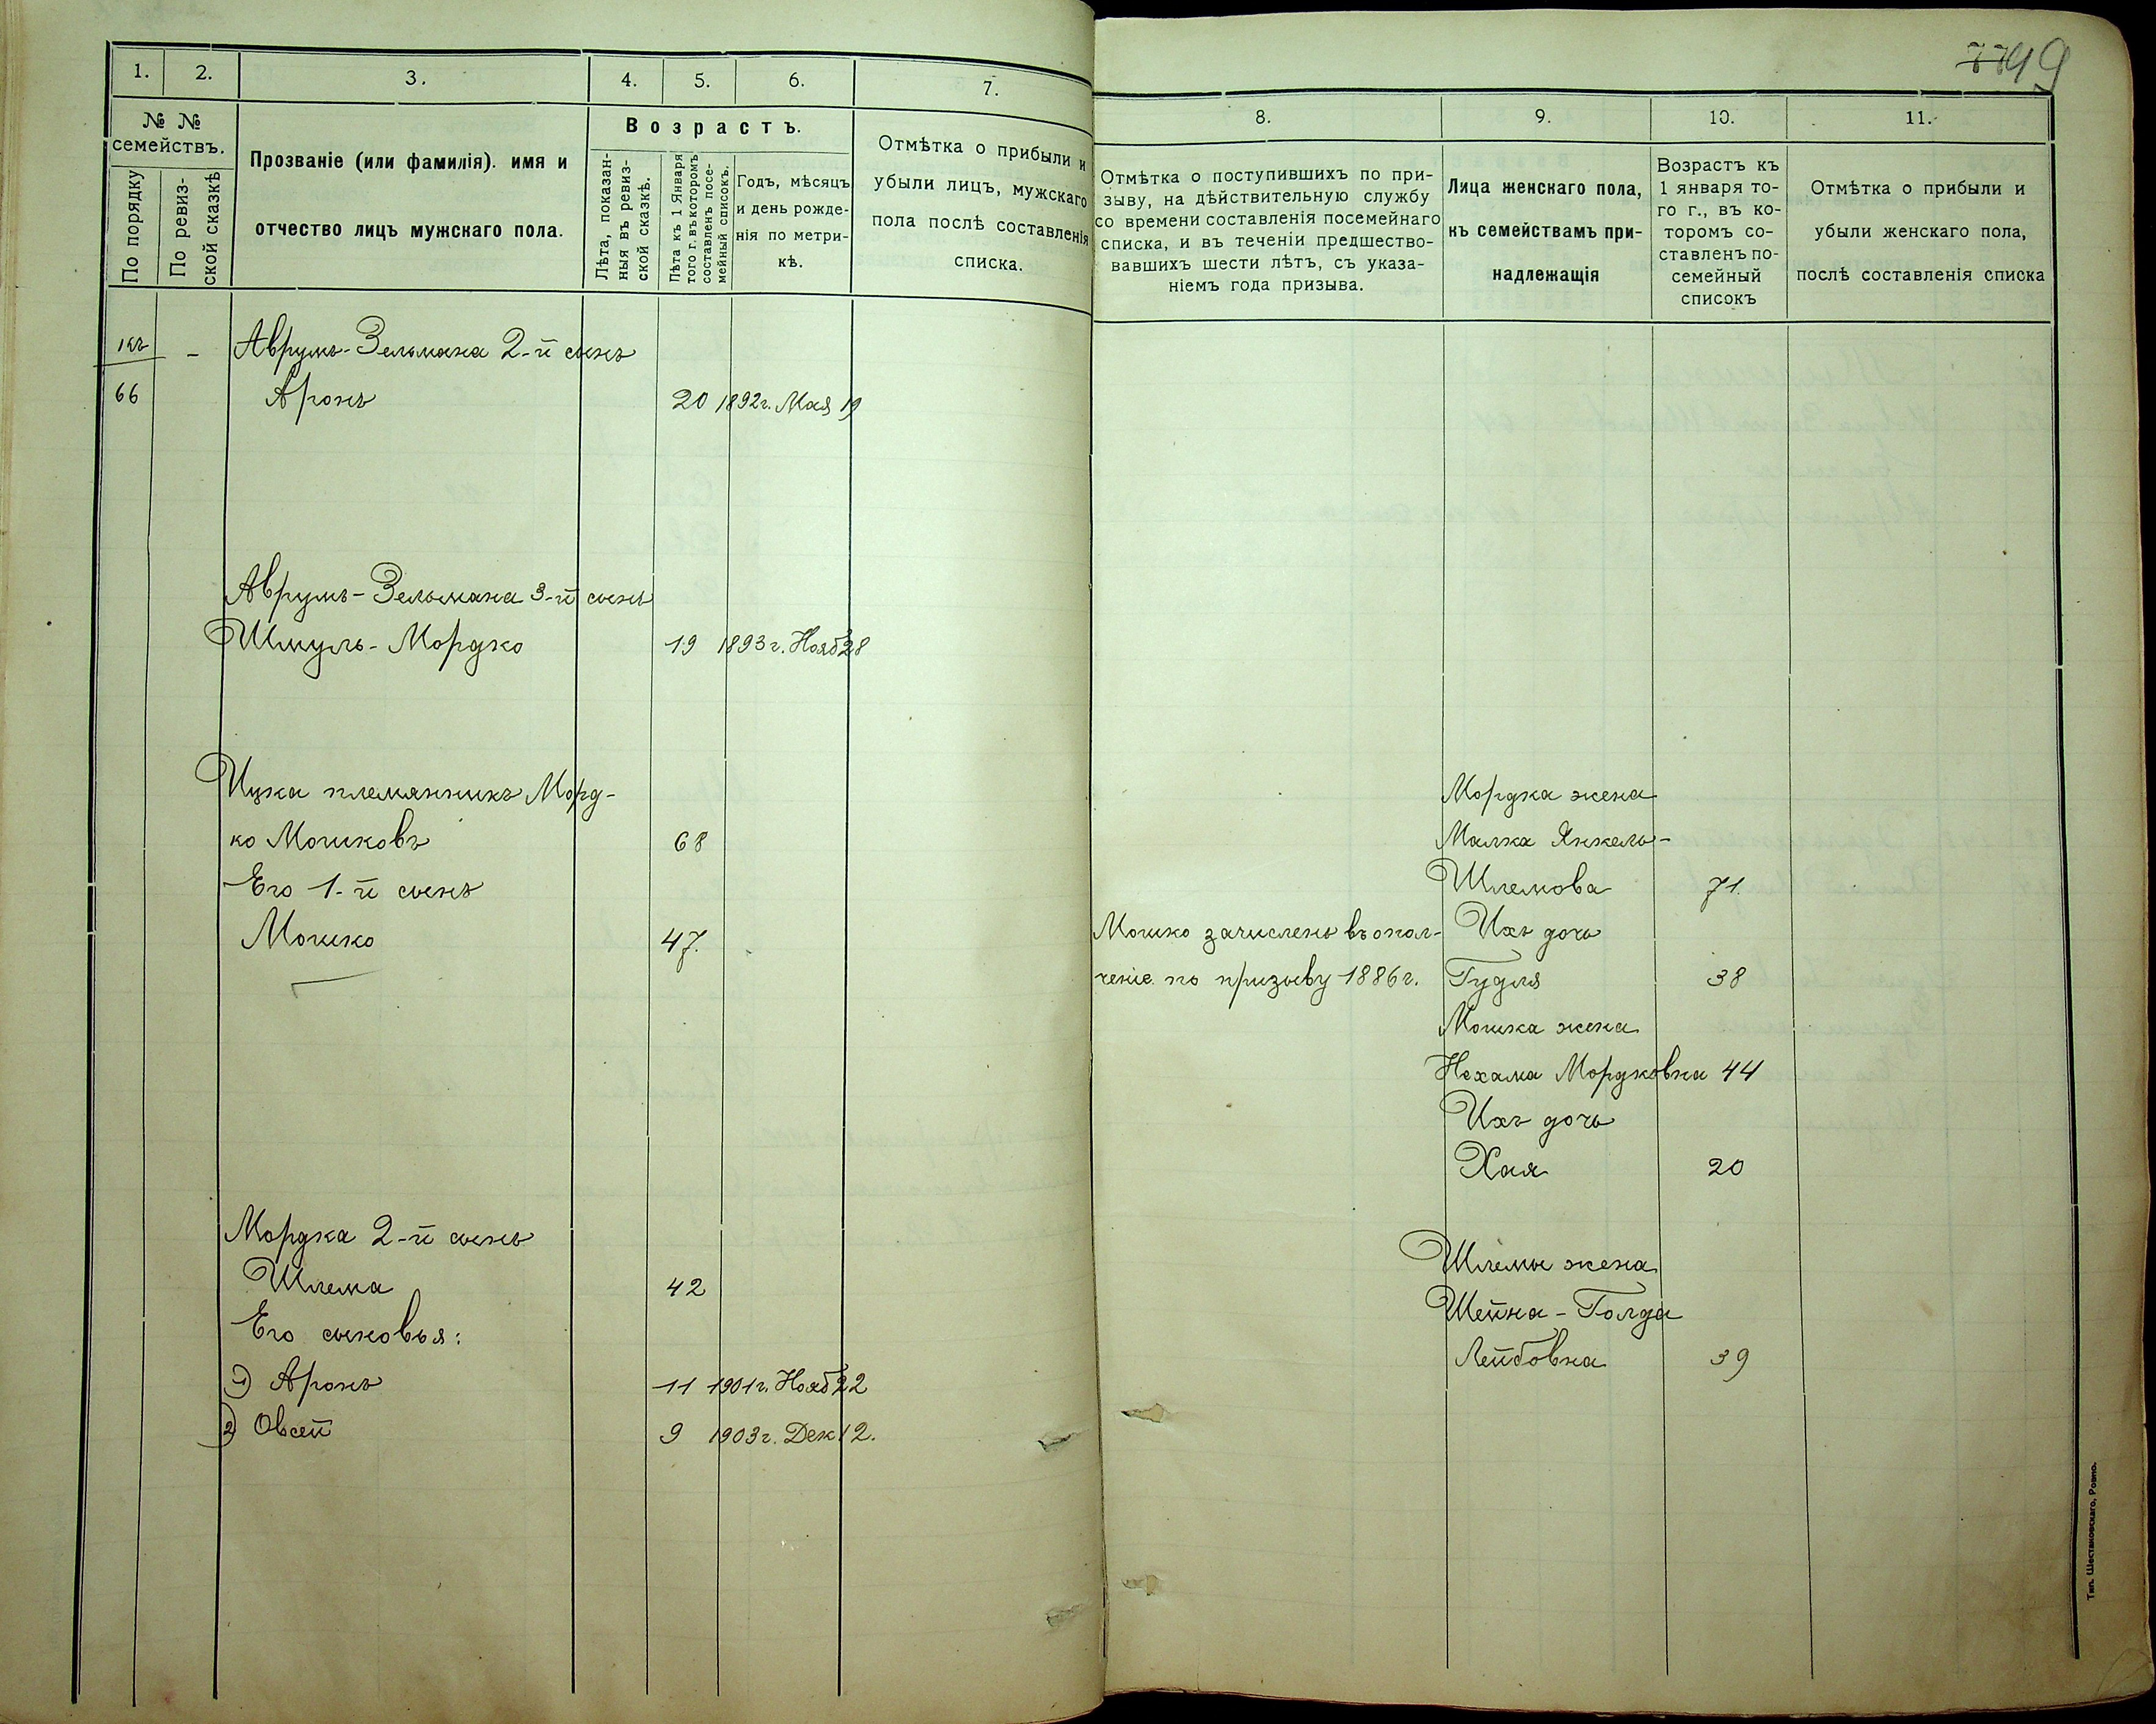 7749
1.
2.
3.
4.
5.
6.
7.
8.
9.
10.
11.
№ №
семействъ.
По порядку
По ревиз-
ской сказкѣ
Прозваніе (или фамилія). имя и
отчество лицъ мужскаго пола.
Возрастъ.
Лѣта, показан-
ныя въ ревиз-
ской сказкѣ.
Лѣта къ 1 Января
того г. въ которомъ
составленъ посе-
мейный списокъ.
Годъ, мѣсяцъ
и день рожде-
нія по метри-
кѣ.
Отмѣтка о прибыли и
убыли лицъ, мужскаго
пола послѣ составленія
списка.
Отмѣтка о поступившихъ по при-
зыву, на дѣйствительную службу
со времени составленія посемейнаго
списка, и въ теченіи предшество-
вавшихъ шести лѣтъ, съ указа-
ніемъ года призыва.
Лица женскаго пола,
къ семействамъ при-
надлежащія
Возрастъ къ
1 января то-
го г., въ ко-
торомъ со-
ставленъ по-
семейный
списокъ
Отмѣтка о прибыли и
убыли женскаго пола,
послѣ составленія списка
къ - Аврумъ-Зельмана 2-й сынъ
66 Аронъ 20 1892г. Мая 19
Аврумъ-Зельмана 3-й сынъ
Шмуль-Мордко 19 1893г. Нояб 28
Ицка племянникъ Морд-
ко Мошковъ 68
Его 1-й сынъ
Мошко 47.
Мордка 2-й сынъ
Шлема 42
Его сыновья:
1) Аронъ 11 1901г. Нояб 22
2) Овсей 9 1903г. Дек 12.
Мошко зачисленъ въ опол-
ченіе по призыву 1886г.
Мордка жена
Малка Янкель-
Шлемова 71.
Ихъ дочь
Гудля 38
Мошка жена
Нехама Мордковна 44
Ихъ дочь
Хая 20
Шлемы жена
Шейна-Голда
Лейбовна 39
Тип. Шестаковскаго, Ровно.